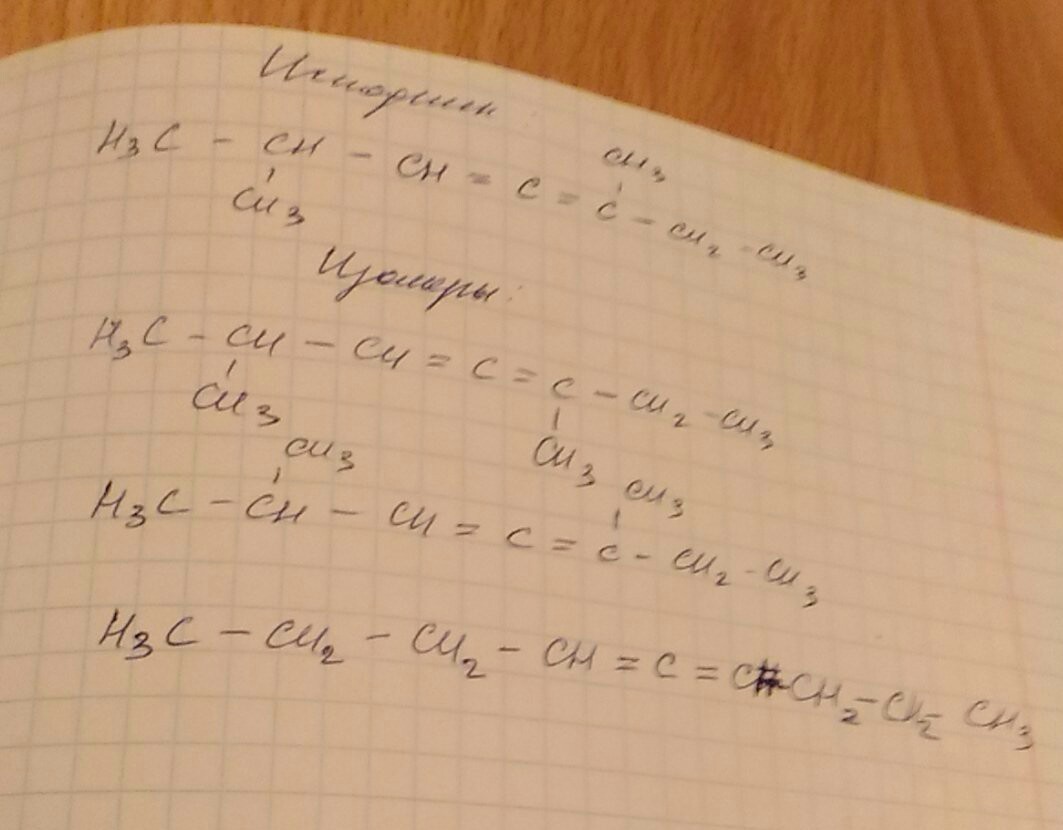 Исходник:
CH3
H3C - CH - CH = C = C - CH2 - CH3
CH3
Изомеры:
H3C - CH - CH = C = C - CH2 - CH3
CH3 CH3
CH3 CH3
H3C - CH - CH = C = C - CH2 - CH3
H3C - CH2 - CH2 - CH = C = C CH2 - CH2 CH3